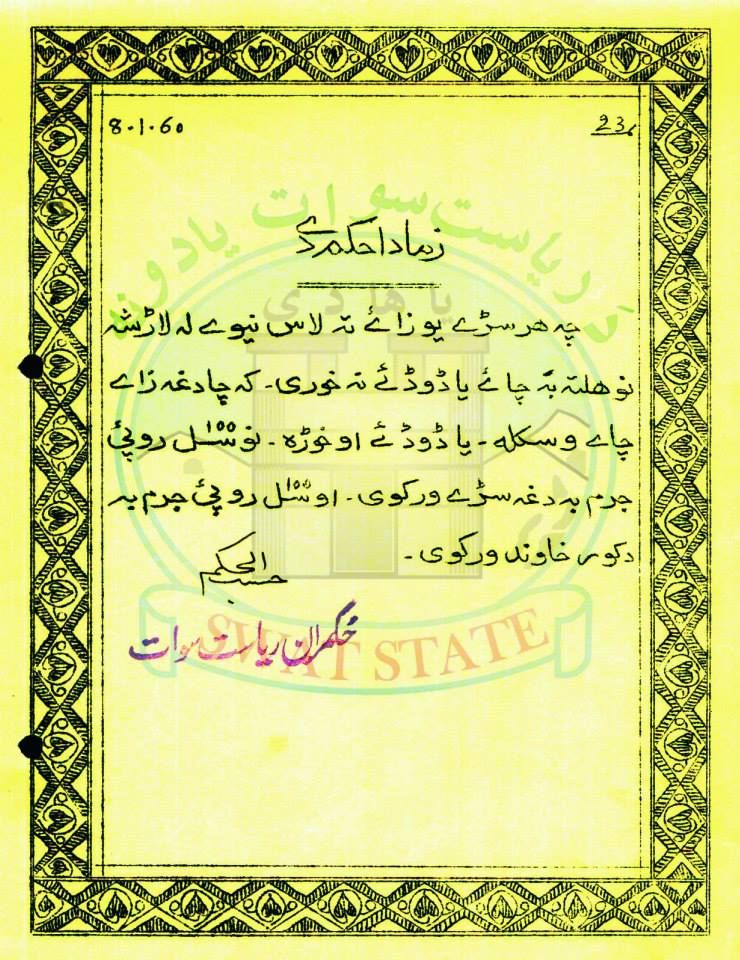 8.1.60
23
زما دا حکم دے
چہ هر سڑے یو زاۓ تہ لاس نیوے لہ لاڑ شہ
نو هلتہ بہ چاۓ یا ڈوڈۓ نہ خوری۔ کہ چا دغہ زاے
چاے وسکلہ۔ یا ڈوڈۓ اوخوڑہ۔ نو سل ۱۰۰ روپئ
جرم بہ دغہ سڑے ورکوی۔ او سل ۱۰۰ روپئ جرم بہ
دکور خاوند ورکوی۔
حسب الحکم
حکمران ریاست سوات
د ریاست سوات یادونہ
یا هادی
SWAT STATE